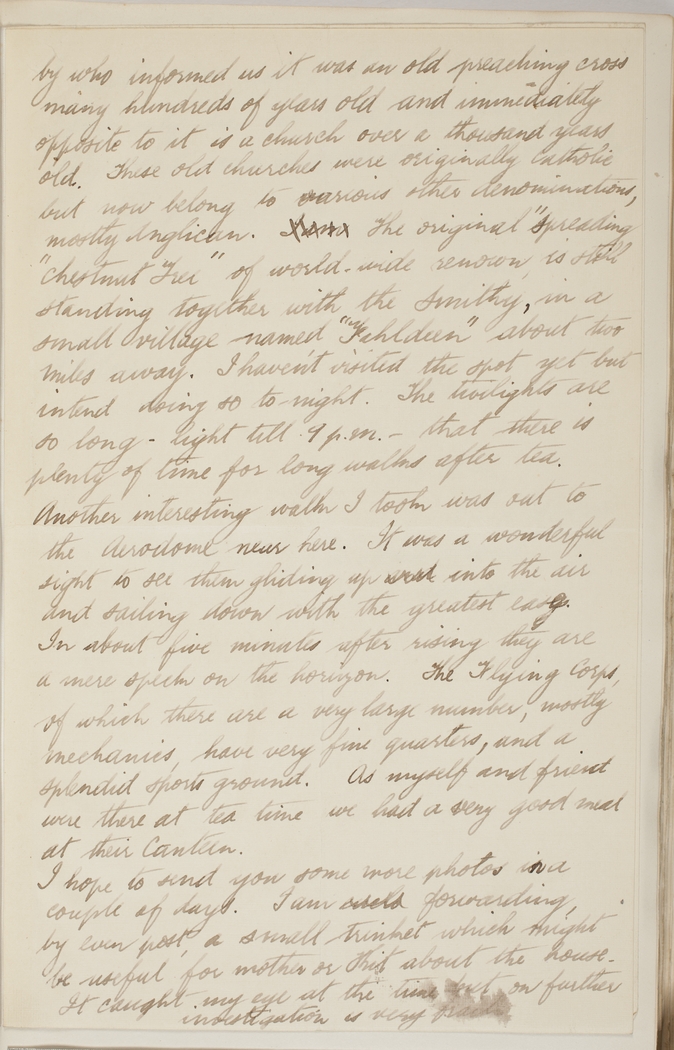 by who informed us it was an old preaching cross
many hundreds of years old and immediately
opposite to it is a church over a thousand years
old. These old churches were originally Catholic
but now belong to various other denominations,
mostly Anglican. The original "spreading
"chestnut Tree" of world-wide renown, is still
standing together with the smithy, in a
small village named "Fihldeen" about two
miles away. I haven't visited the spot yet but
intend doing so to-night. The twilights are
so long - light till 9 p.m. - that there is
plenty of time for long walks after tea.
Another interesting walk I took was out to
the Aerodome near here. It was a wonderful
sight to see them gliding up and into the air
and sailing down with the greatest ease.
In about five minutes after rising they are
a mere speck on the horizon. The Flying Corps,
of which there are a very large number, mostly
mechanics, have very fine quarters, and a
splendid sports ground. As myself and friend
were there at tea time we had a very good meal
at their Canteen.
I hope to send you some more photos in a
couple of days. I am forwarding,
by even post, a small trinket which might
be useful for mother or about the house.
It caught my eye at the time but on further
investigation is very